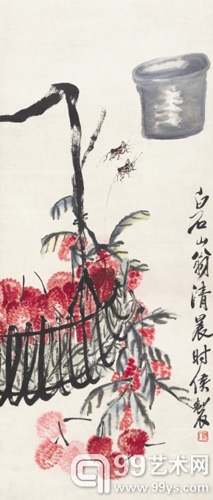 白石山翁清晨时候製
99艺术网
www.99ys.com